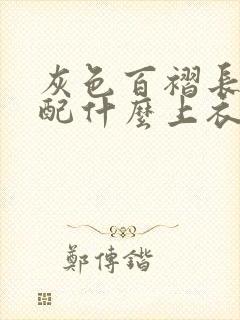 灰色百褶長
配什麼上衣
鄭傳鍇